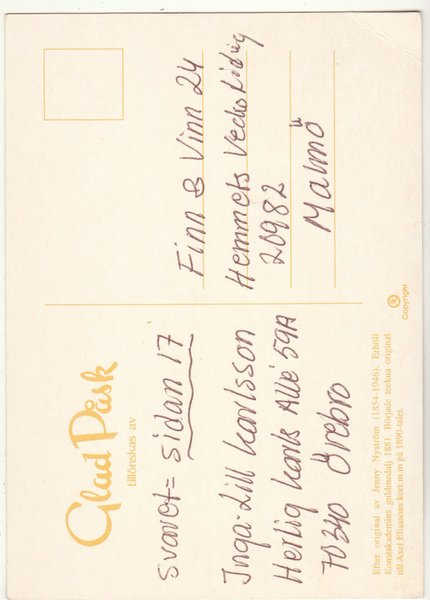 Glad Påsk
tillönskas av
Svaret= sidan 17
Inga-Lill Karlsson
Hertig Karls Allé 59A
70340 Örebro
Efter original av Jenny Nyström (1854-1946). Erhöll
Konstakademins guldmedalj 1881. Började teckna original
till Axel Eliassons kort m.m på 1890-talet.
Finn & Vinn 24
Hemmets Vecko tidnig
20982
Malmö
Copyright